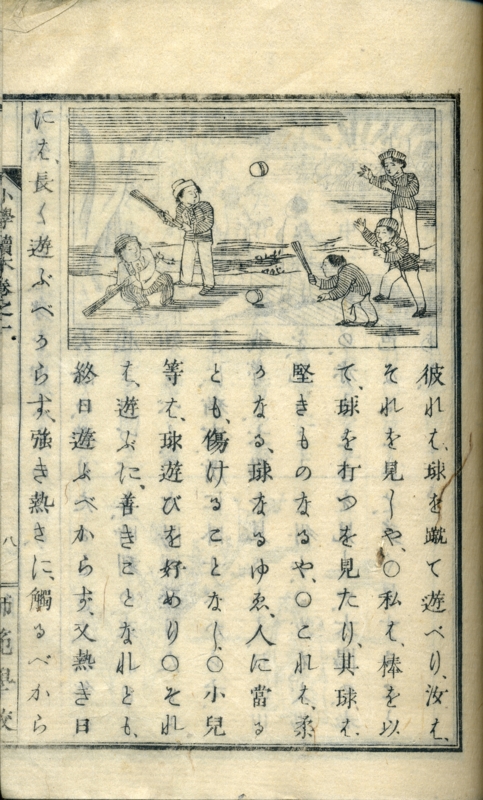 彼れは、球を蹴て遊べり、汝は、
それを見しや、○私は、棒を以
て、球を打つを見たり、其球は、
堅きものなるや、○これは、柔
かなる、球なるゆゑ、人に當る
とも、傷けることなし、○小兒
等は、球遊びを好めり○それ
は、遊ぶに、善きことなれども、
終日遊ぶべからず、又熱き日
には、長く遊ぶべからず、強き熱さに、觸るべから
小學讀本卷之一
八
師範學校